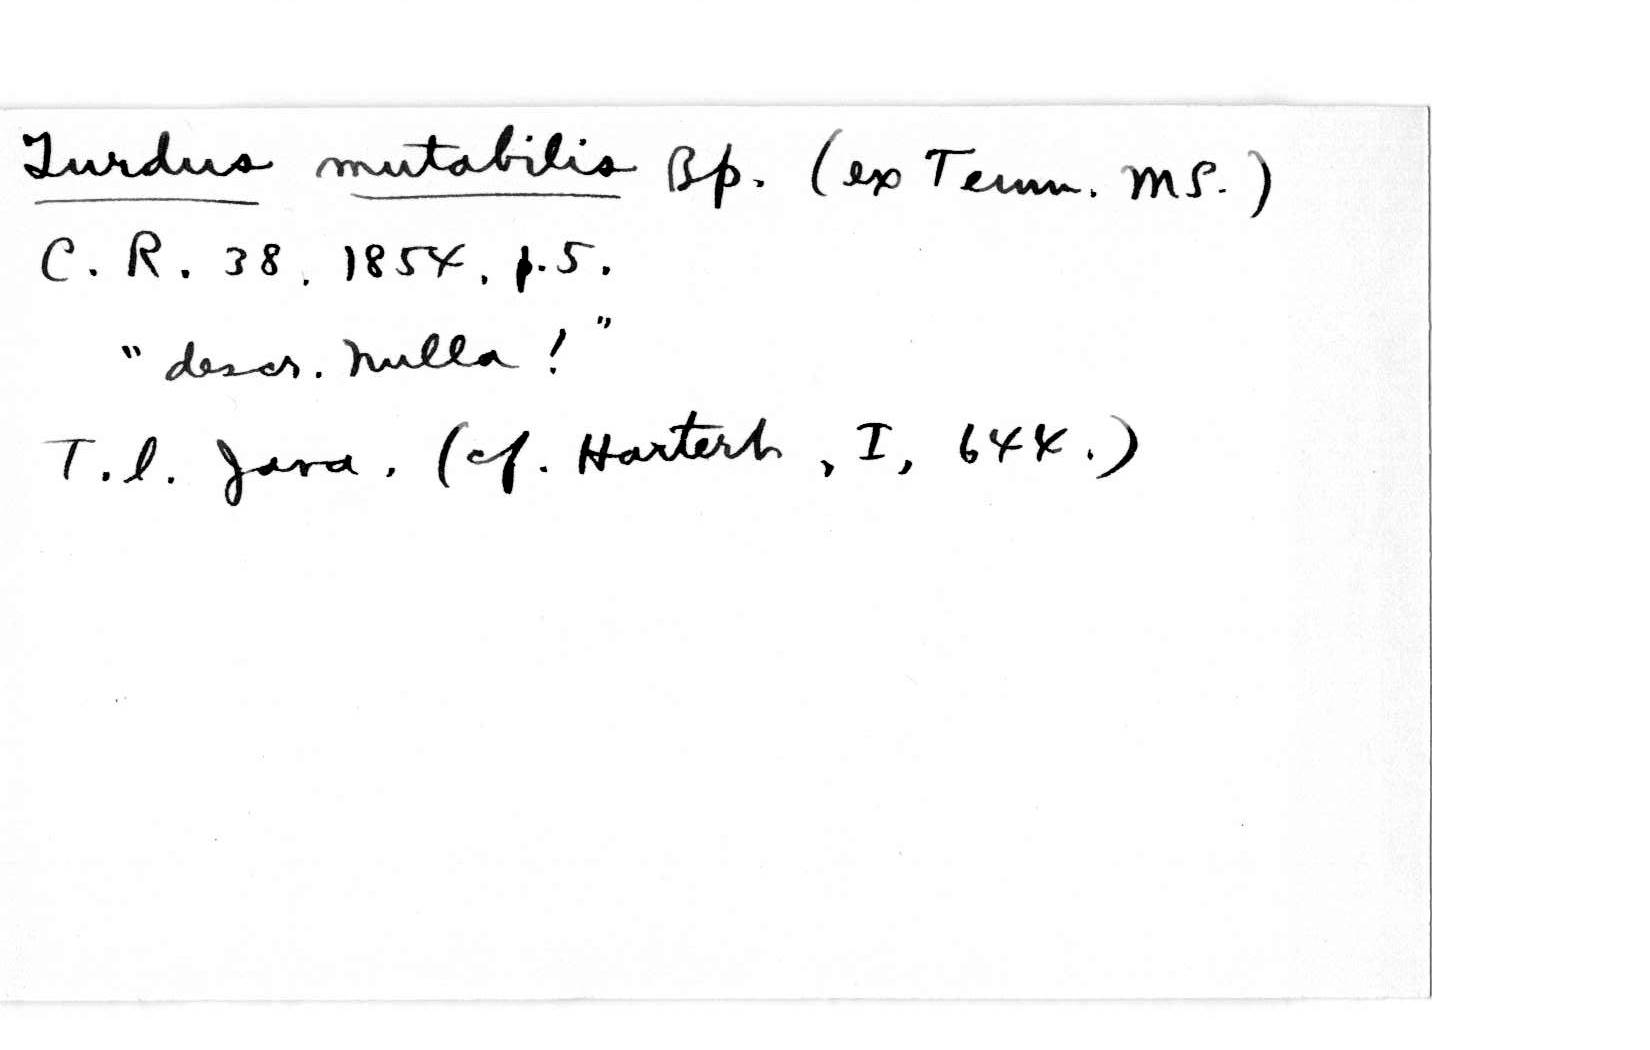 Turdus mutabilis Bp. (ex Temm. MS.)
C. R. 38, 1854, p. 5.
"descr. nulla!"
T. l. Java. (cf. Hartert, I, 644.)